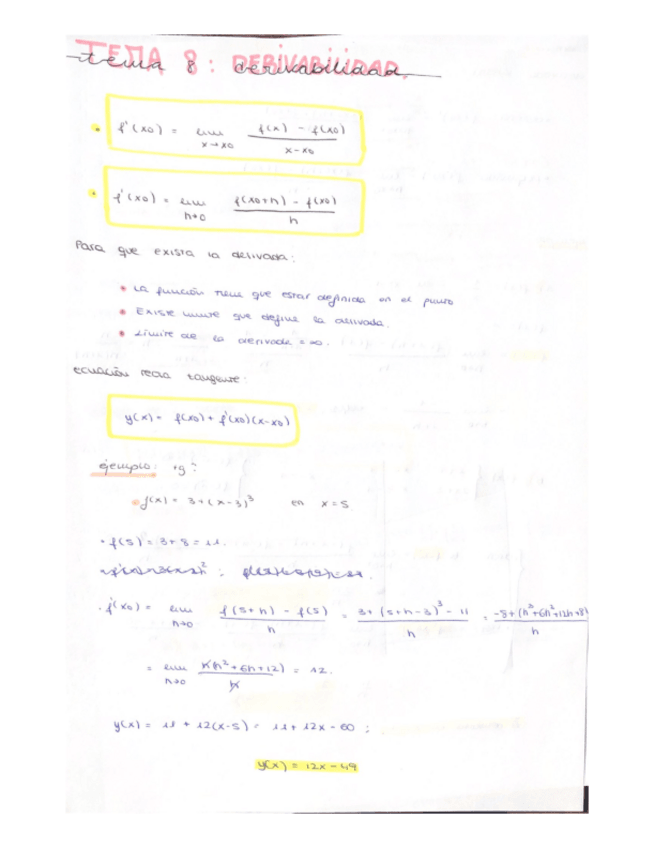 TEMA 8: DERIVABILIDAD.
tema 8 derivabilidad
• f'(x0) = lim x→x0 f(x) - f(x0) / x-x0
• f'(x0) = lim h→0 f(x0+h) - f(x0) / h
Para que exista la derivada:
• La función tiene que estar definida en el punto
• Existe limite que define la derivada.
• Limite de la derivada = ∞.
ecuación recta tangente:
y(x) = f(x0) + f'(x0)(x-x0)
ejemplo:
• f(x) = 3+(x-3)³ en x=5
• f(5) = 3+8 = 11.
• f'(x0) = lim h→0 f(5+h) - f(5) / h = 3+(5+h-3)³ - 11 / h = -8+(h³+6h²+12h+8) / h
= lim h→0 h(h²+6h+12) / h = 12.
y(x) = 11 + 12(x-5) = 11+ 12x - 60 ;
y(x) = 12x-49